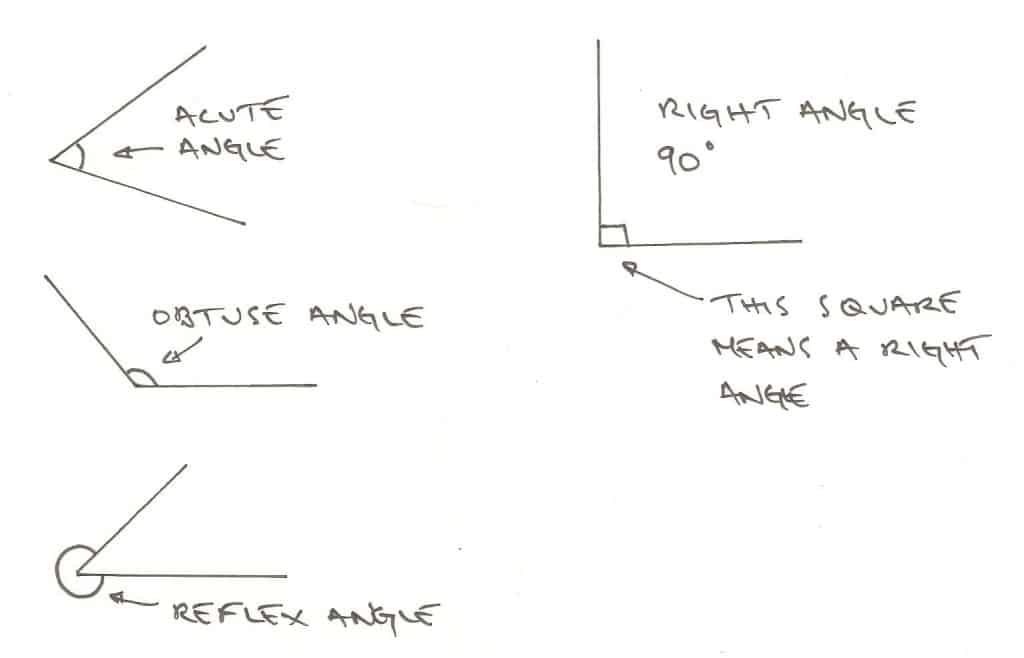 ACUTE
ANGLE
RIGHT ANGLE
90°
OBTUSE ANGLE
THIS SQUARE
MEANS A RIGHT
ANGLE
REFLEX ANGLE